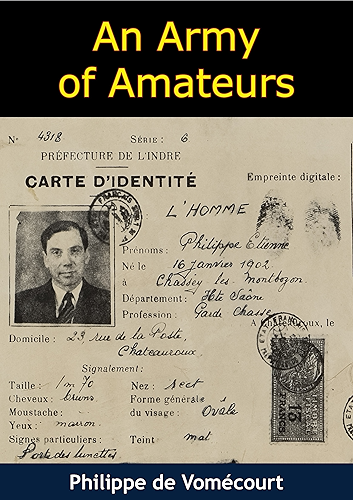 An Army
of Amateurs
N° 4318 SÉRIE: 6
PRÉFECTURE DE L'INDRE
CARTE D'IDENTITÉ
Empreinte digitale:
L'HOMME
Prénoms: Philippe Etienne
Né le 16 janvier 1902
à Chassey les Montbozon
Département: Hte Saône
Profession: Garde Chasse
A Chateauroux, le
Domicile: 23, rue de la Poste,
Chateauroux
Signalement:
Taille: 1m 70 Nez: rect
Cheveux: bruns Forme générale
Moustache: du visage: Ovale
Yeux: marron
Signes particuliers: Teint mat
Porte des lunettes
Philippe de Vomécourt